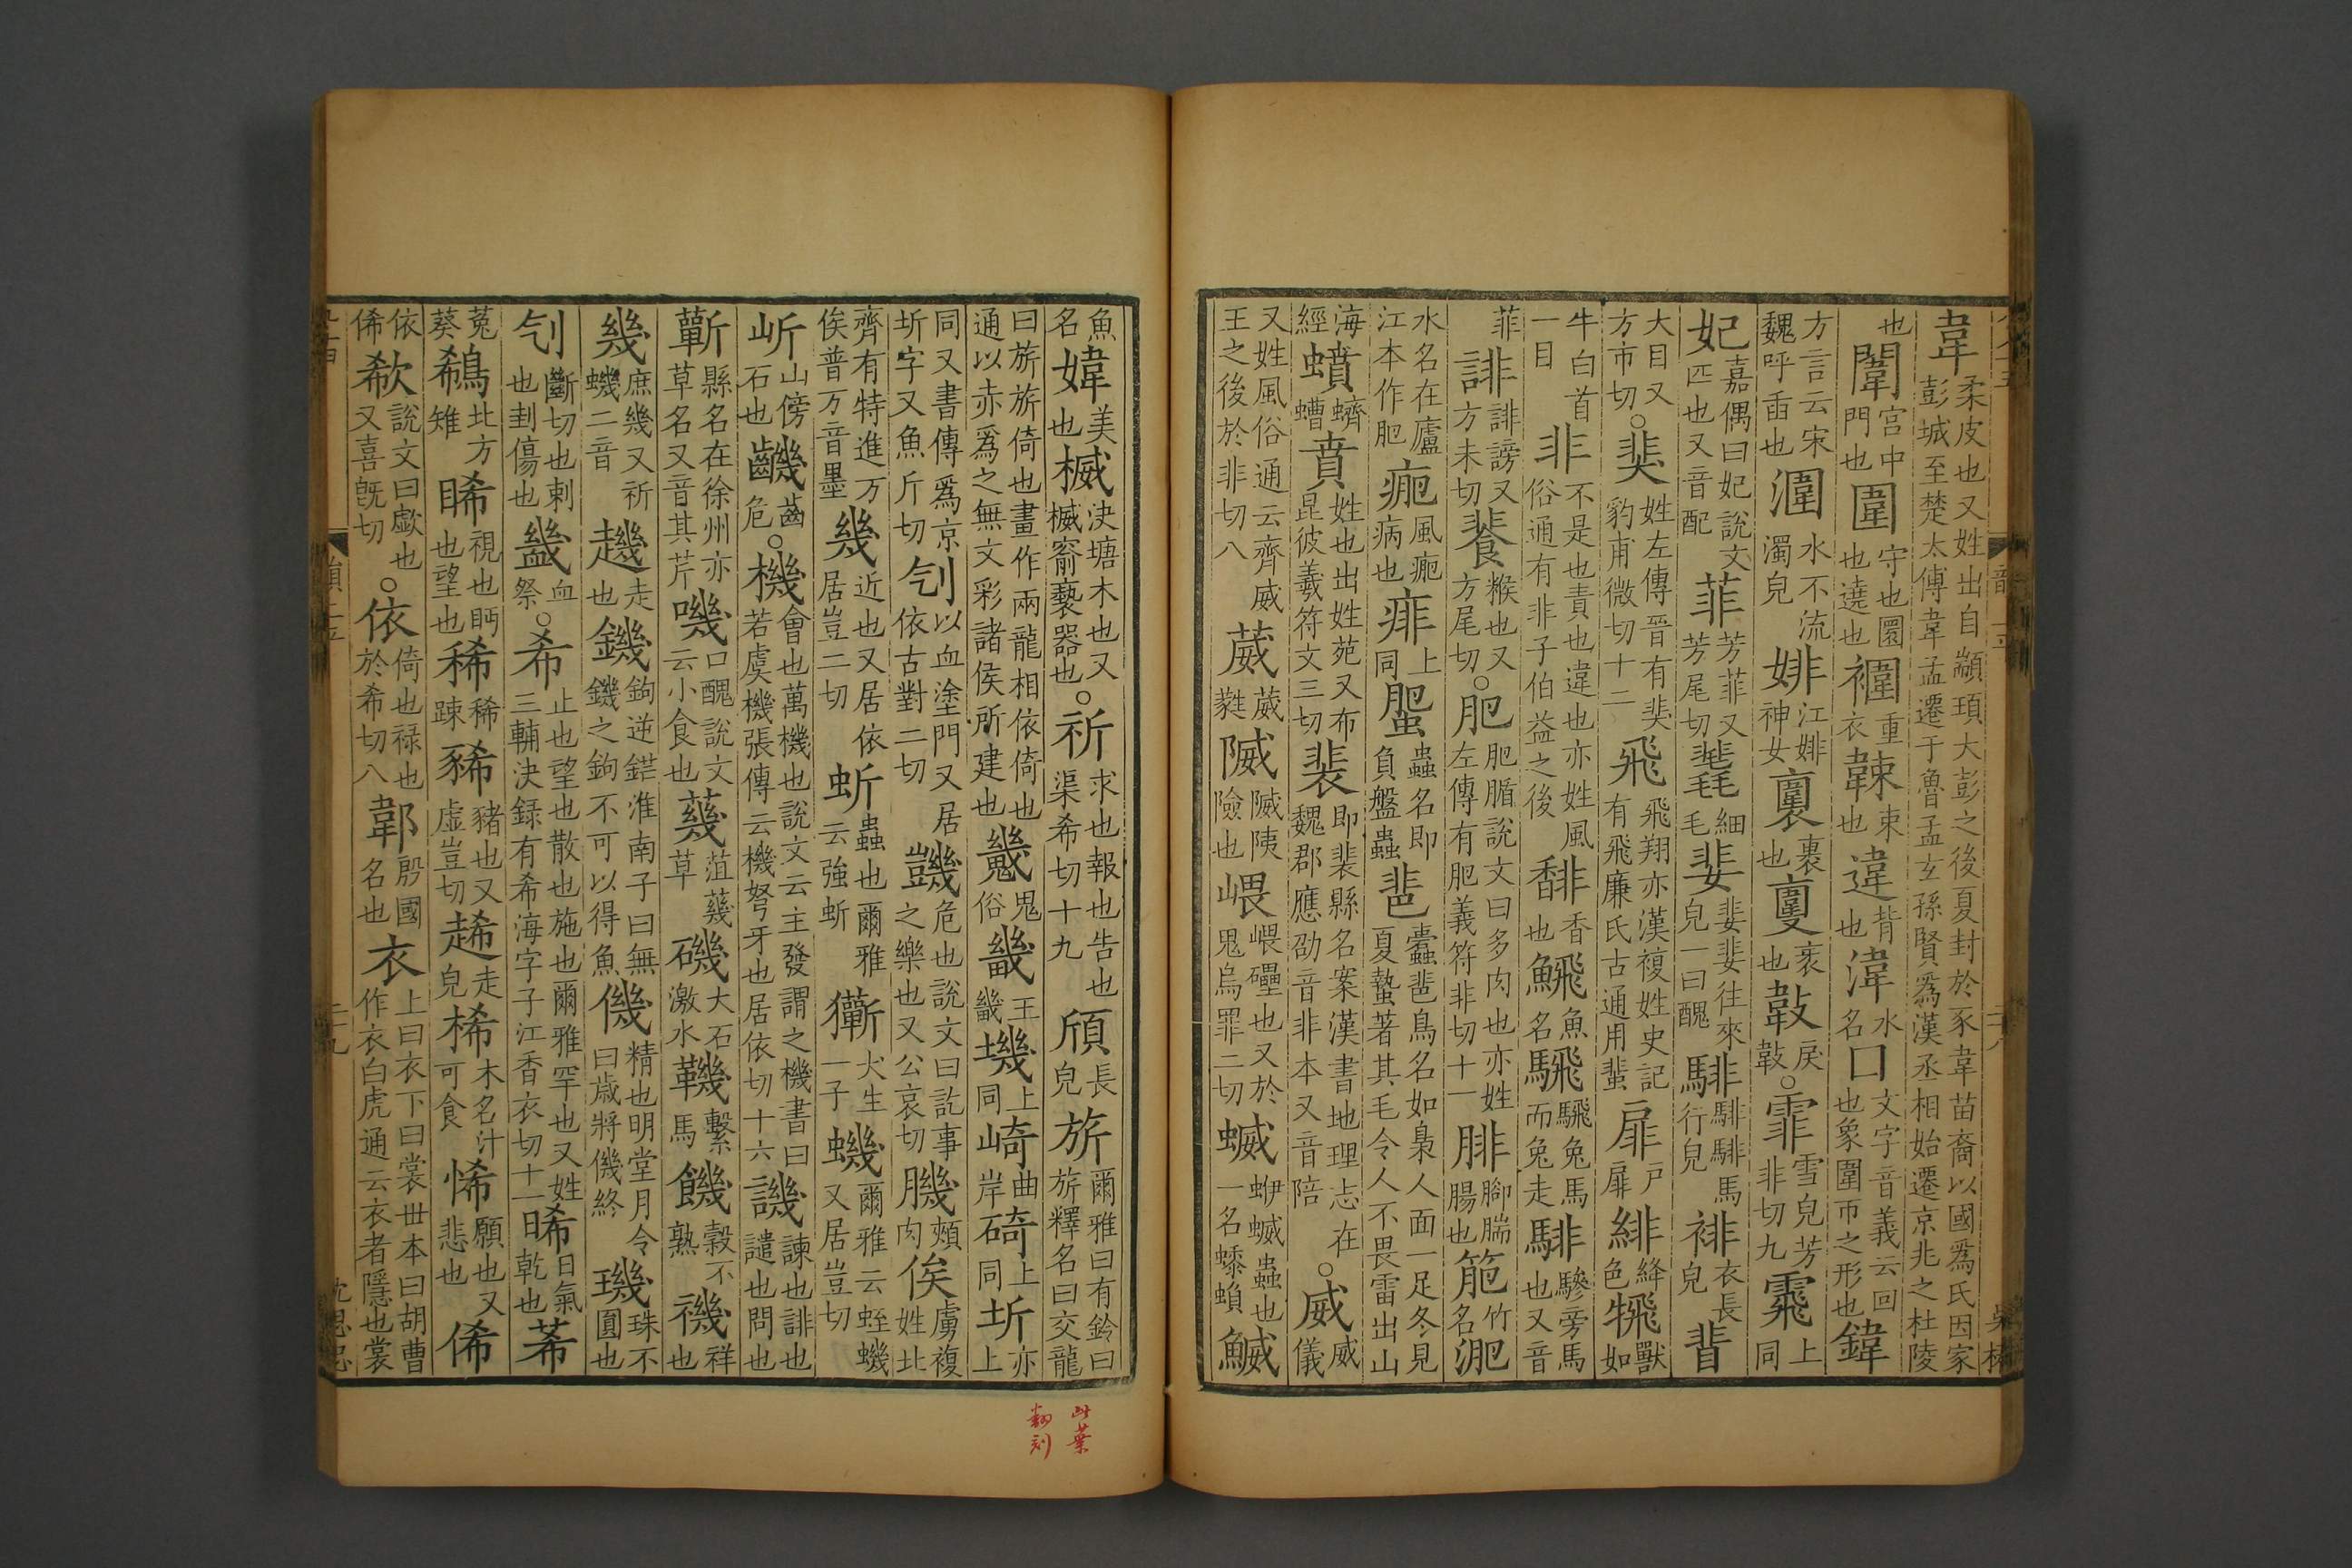 韋柔皮也又姓出自顓頊大彭之後夏封於豕韋苗裔以國爲氏因家彭城至楚太傅韋孟遷于魯孟玄孫賢爲漢丞相始遷京兆之杜陵
也闈宮中門也圍守也圜也遶也重衣束也違背也湋水名囗文字音義云回也象圍帀之形也鍏
方言云宋魏呼臿也潿水不流濁皃婔江婔神女裹也衺也戾○霏雪皃芳非切九上同
妃嘉偶曰妃說文匹也又音配菲芳菲又芳尾切細毛婓婓婓往來皃一曰醜騑騑騑馬行皃裶衣長皃
大目又方市切○奜姓左傳晉有奜豹甫微切十二飛飛翔亦漢複姓史記有飛廉氏古通用蜚扉戶扉緋絳色獸如
牛白首一目非不是也責也違也亦姓風俗通有非子伯益之後馡香也魚名騛騛兔馬而兔走騑驂旁馬也又音
菲誹誹謗又方未切餥餱也又方尾切○肥肥腯說文曰多肉也亦姓左傳有肥義符非切十一腓腳腨腸也竹名淝
水名在廬江本作肥風病也痱上同蜰蟲名即負盤蟲橐鳥名如梟人面一足冬見夏蟄著其毛令人不畏雷出山
海經蟦蠐螬賁姓也出姓苑又布昆彼義符文三切裴即裴縣名案漢書地理志在魏郡應劭音非本又音陪○威威儀
又姓風俗通云齊威王之後於非切八葳葳蕤隇隇陦險也嵔嵔也又於鬼烏罪二切蝛蛜蝛蟲也一名鰄
魚名媁美也楲決塘木也又楲窬褻器也○祈求也報也告也渠希切十九頎長皃旂爾雅曰有鈴曰旂釋名曰交龍
曰旂旂倚也畫作兩龍相依倚也通以赤爲之無文彩諸侯所建也鬼俗畿王畿上同崎曲岸碕上同圻上亦
同又書傳爲京圻字又魚斤切刉以血塗門又居依古對二切危也說文曰訖事之樂也又公哀切頰肉俟虜複姓北
齊有特進万俟普万音墨幾近也又居依居豈二切蚚蟲也爾雅云強蚚犬生一子蟣爾雅云蛭蟣又居豈切
岓山傍石也齒危○機會也萬機也說文云主發謂之機書曰若虞機張傳云機弩牙也居依切十六譏諫也誹也譴也問也
蘄縣名在徐州亦草名又音其芹嘰口醜說文云小食也菹草磯大石激水鞿繫馬饑穀不熟禨祥也
幾庶幾又祈蟣二音走也鐖鉤逆鋩淮南子曰無鐖之鉤不可以得魚僟精也明堂月令曰歲將僟終璣珠不圓也
刉斷切也刺也刲傷也血祭○希止也望也散也施也爾雅罕也又姓三輔決録有希海字子江香衣切十一晞日氣乾也莃
菟葵鵗北方雉睎視也眄也望也稀稀踈豨豬也又虛豈切走皃桸木名汁可食悕願也又悲也俙
依俙欷說文曰歔也又喜旣切○依倚也禄也於希切八郼殷國名也衣上曰衣下曰裳世本曰胡曹作衣白虎通云衣者隱也裳
此葉
翻刻